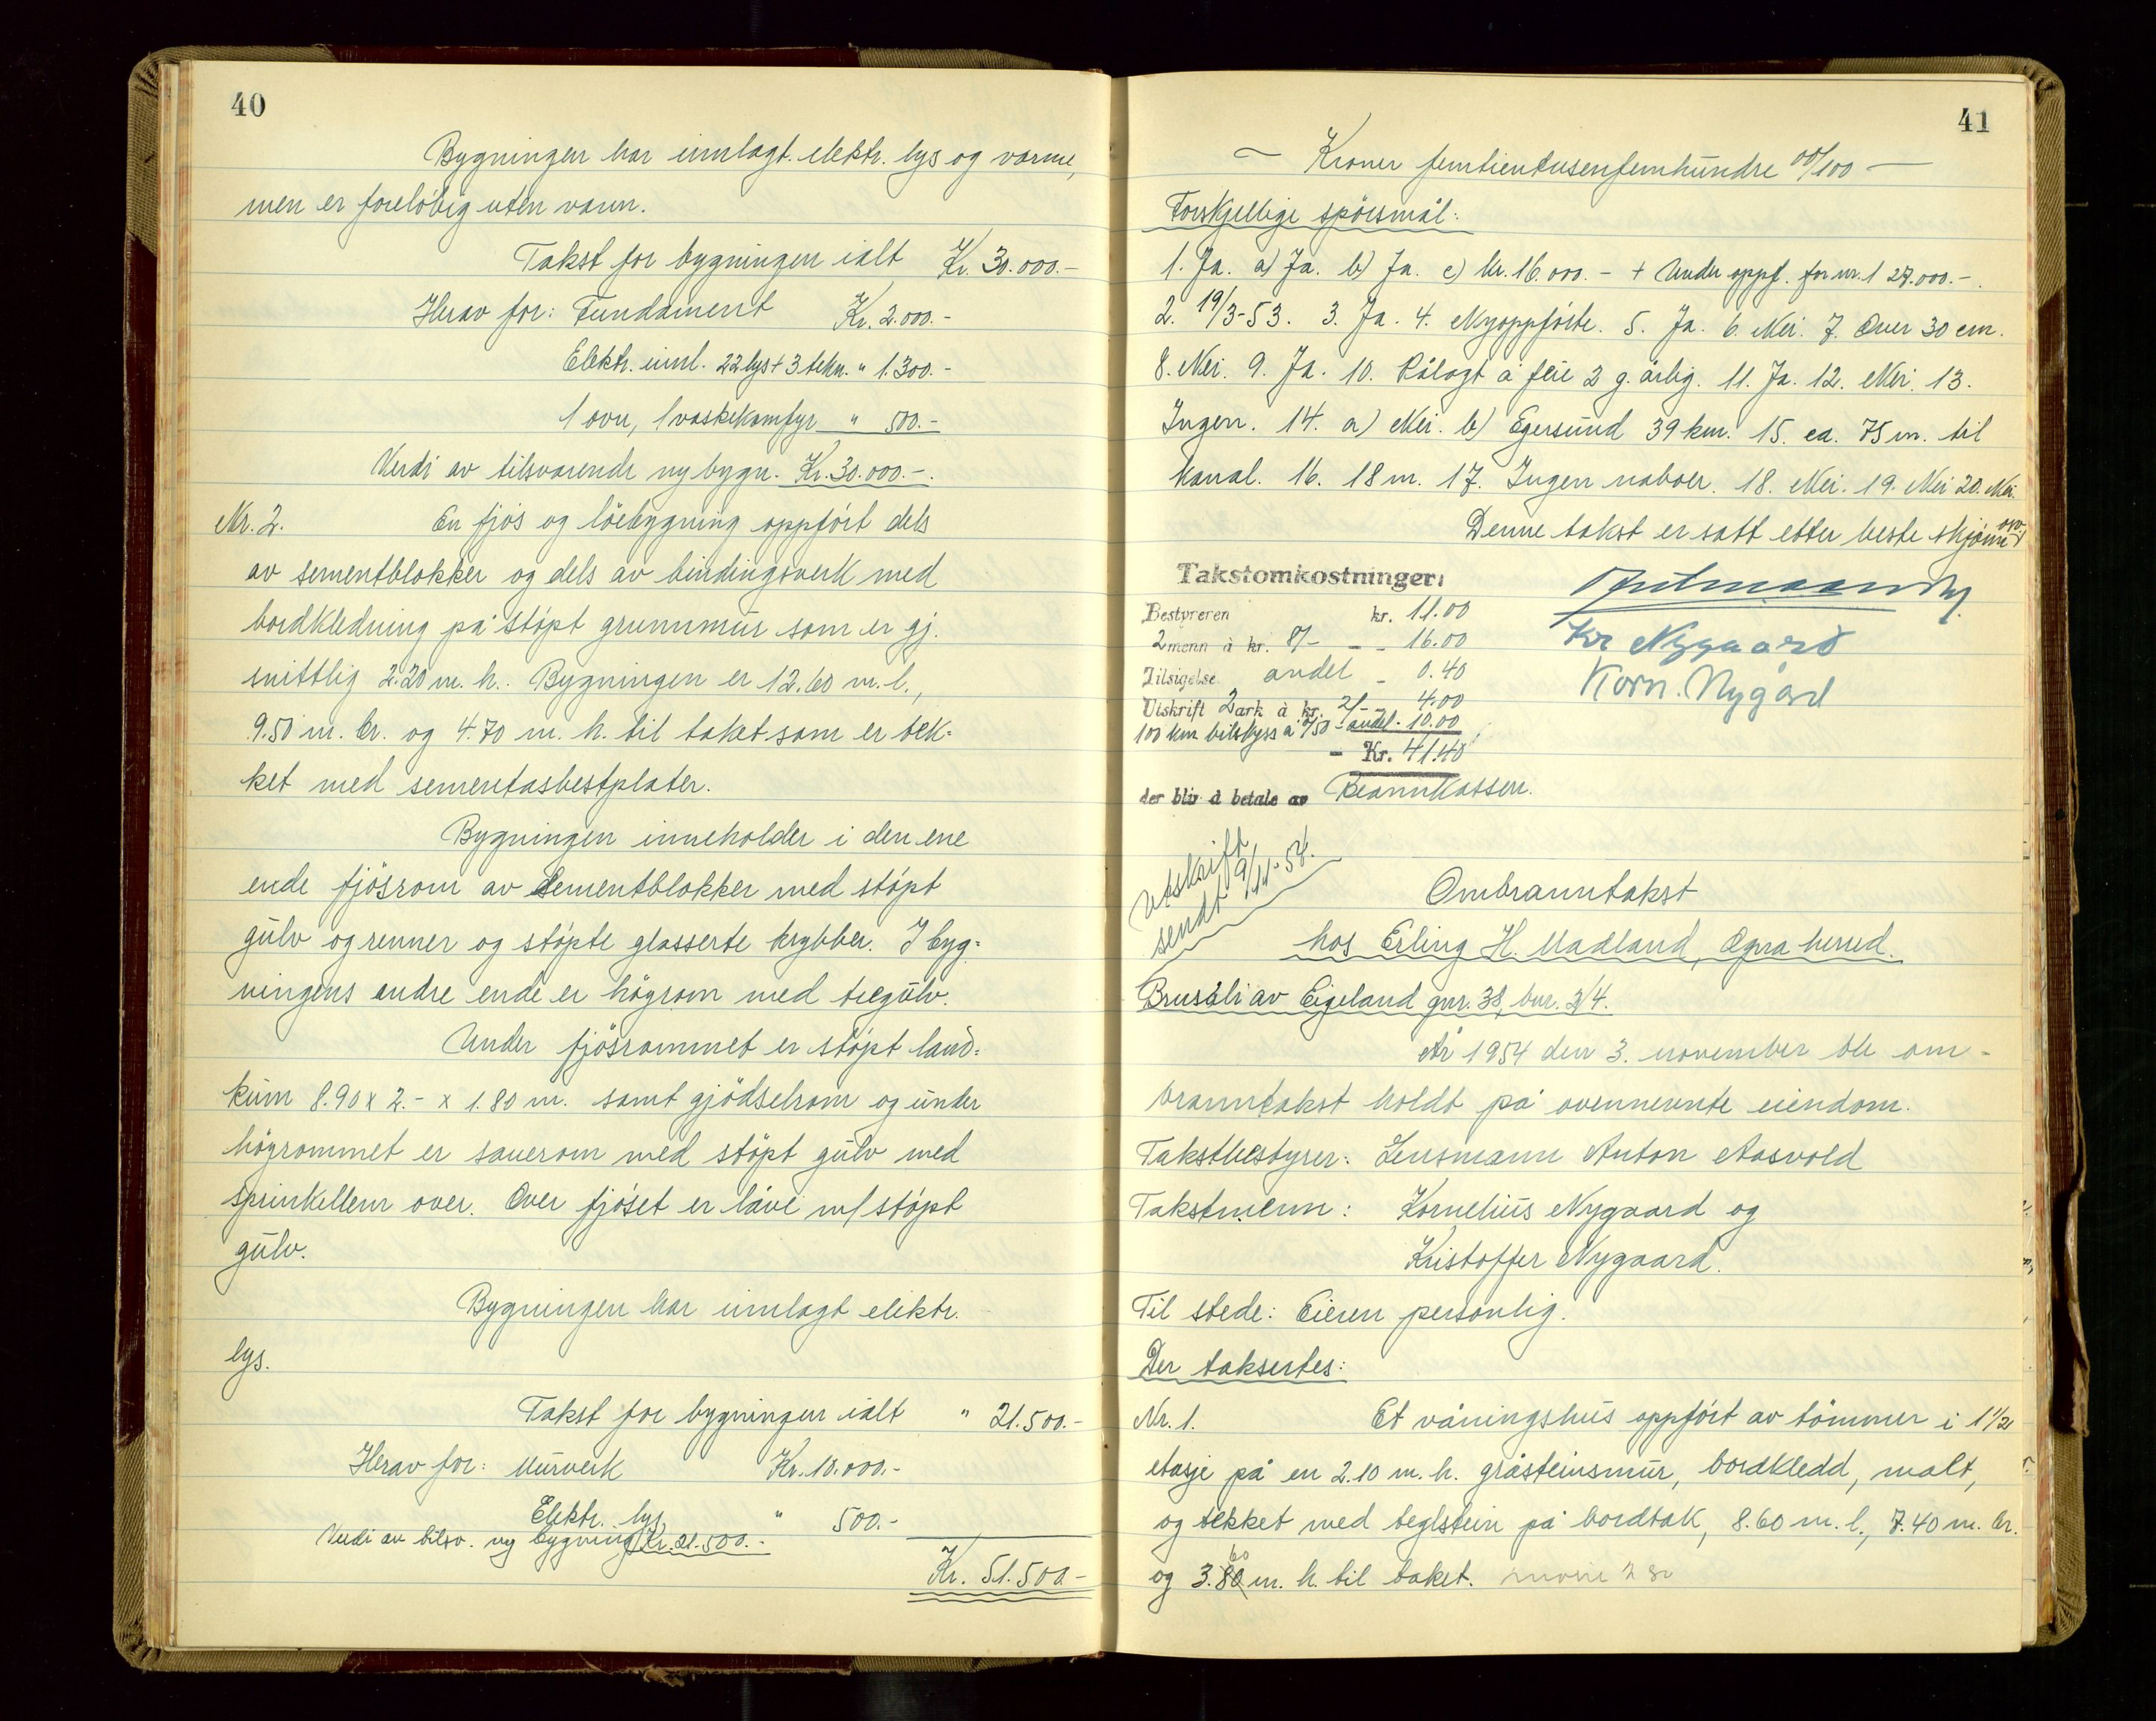 40
Bygningen har innlagt elektr. lys og varme,
men er foreløbig uten vann.
Takst for bygningen ialt Kr. 30.000.-
Herav for: Fundament Kr. 2.000.-
Elektr. innl. 22 lys + 3 tekn. " 1.300.-
1 ovn, 1 vaskekomfyr " 500.-
Verdi av tilsvarende ny bygn. Kr. 30.000.-.
Nr. 2. En fjös og löebygning oppfört dels
av sementblokker og dels av bindingsverk med
bordkledning på stöpt grunnmur som er gj.
snittlig 2.20 m. h. Bygningen er 12.60 m. l.,
9.50 m. br. og 4.70 m. h. til taket som er tek=
ket med sementasbestplater.
Bygningen inneholder i den ene
ende fjösrom av sementblokker med stöpt
gulv og renner og stöpte glasserte krybber. I byg=
ningens andre ende er högrom med tregulv.
Under fjösrommet er stöpt land=
kum 8.90 x 2.- x 1.80 m. samt gjödselrom og under
högrommet er sauerom med stöpt gulv med
sprinkellem over. Over fjöset er låve m/ stöpt
gulv.
Bygningen har innlagt elektr.
lys.
Takst for bygningen ialt " 21.500.-
Herav for: Murverk Kr. 10.000.-
Elektr. lys " 500.-
Verdi av tilsv. ny bygning Kr. 21.500.-
Kr. 51.500.-
41
~ Kroner femtientusenfemhundre 00/100 —
Forskjellige spörsmål:
1. Ja. a) Ja. b) Ja. c) kr. 16.000.- + Under oppf. for nr. 1 27.000.-.
2. 19/3-53. 3. Ja. 4. Nyoppförte. 5. Ja. 6. Nei. 7. Over 30 cm.
8. Nei. 9. Ja. 10. Pålagt å feie 2 g. årlig. 11. Ja. 12. Nei. 13.
Ingen. 14. a) Nei. b) Egersund 39 km. 15. ca. 75 m. til
kanal. 16. 18 m. 17. Ingen naboer. 18. Nei. 19. Nei 20. Nei.
Denne takst er satt etter beste skjönn
Takstomkostninger:
Bestyreren kr. 11.00
2 menn à kr. 8/- - - 16.00
Tilsigelse andel - 0.40
Utskrift 2 ark à kr. 2/- - 4.00
100 km bilskyss à -/50 - andel - 10.00
- Kr. 41.40
der bliv å betale av Brannkassen.
Kr Nygaard
Korn. Nygård
Utskrift
sendt 19/11-54.
Ombranntakst
hos Erling H. Madland, Ogna herred.
Brusali av Eigeland gnr. 38, bnr. 2/4.
År 1954 den 3. november ble om-
branntakst holdt på ovennevnte eiendom.
Takstbestyrer: Lensmann Anton Aasvold
Takstmenn: Kornelius Nygaard og
Kristoffer Nygaard.
Til stede: Eieren personlig.
Der taksertes:
Nr. 1. Et våningshus oppfört av tömmer i 1 1/2
etasje på en 2.10 m. h. gråsteinsmur, bordkledd, malt,
og tekket med teglstein på bordtak, 8.60 m. l., 7.40 m. br.
60
og 3.80 m. h. til taket.